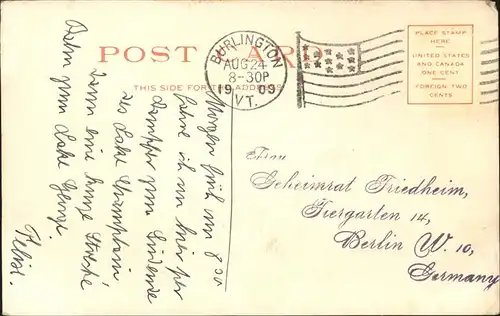 POST CARD
THIS SIDE FOR THE ADDRESS
BURLINGTON
AUG 24
8-30P
19 09
VT.
PLACE STAMP
HERE
UNITED STATES
AND CANADA
ONE CENT
FOREIGN TWO
CENTS
Morgen früh um 8 00
fahre ich von hier per
Dampfer zum Südende
des Lake Champlain
dann eine kurze Strecke
Bahn zum Lake George.
Geheimrat Friedheim,
Tiergarten 14,
Berlin W. 10,
Germany